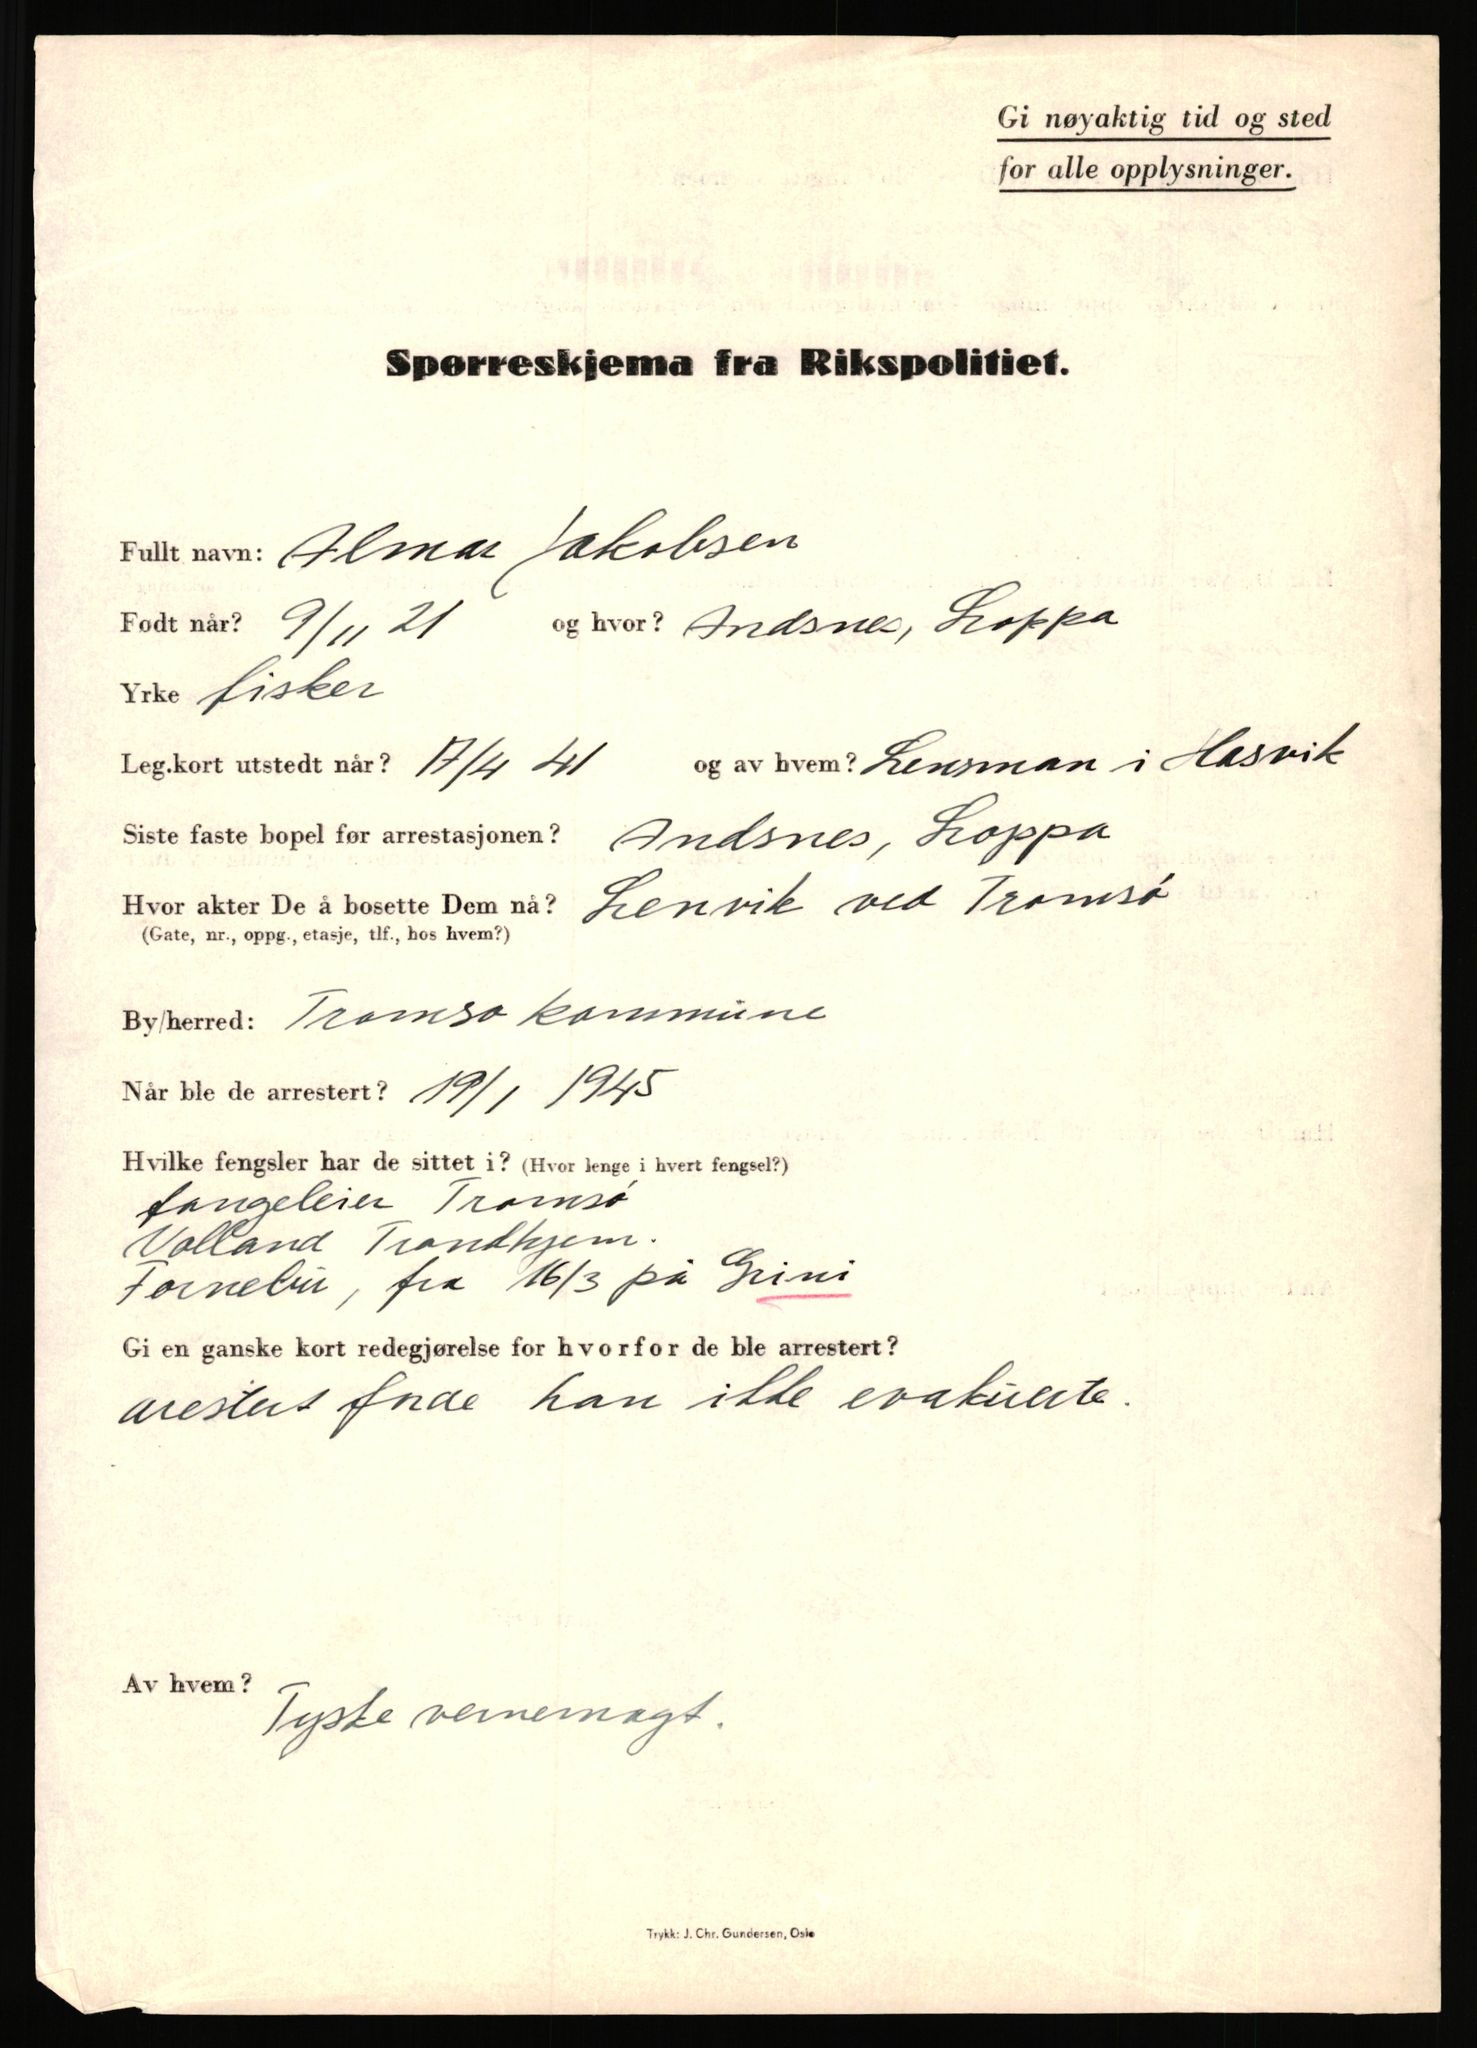 Gi nøyaktig tid og sted
for alle opplysninger.
Spørreskjema fra Rikspolitiet.
Fullt navn: Almar Jakobsen
Født når? 9/11 21 og hvor? Andsnes, Loppa
Yrke fisker
Leg.kort utstedt når? 17/4 41 og av hvem? Lensman i Hasvik
Siste faste bopel før arrestasjonen? Andsnes, Loppa
Hvor akter De å bosette Dem nå? Lenvik ved Tromsø
(Gate, nr., oppg., etasje, tlf., hos hvem?)
By/herred: Tromsø kommune
Når ble de arrestert? 19/1 1945
Hvilke fengsler har de sittet i? (Hvor lenge i hvert fengsel?)
fangeleier Tromsø
Volland Trondhjem.
Fornebu, fra 16/3 på Grini
Gi en ganske kort redegjørelse for hvorfor de ble arrestert?
arestert han ikke evakuerte.
Av hvem?
Tyske vernemagt.
Trykk: J. Chr. Gundersen, Oslo